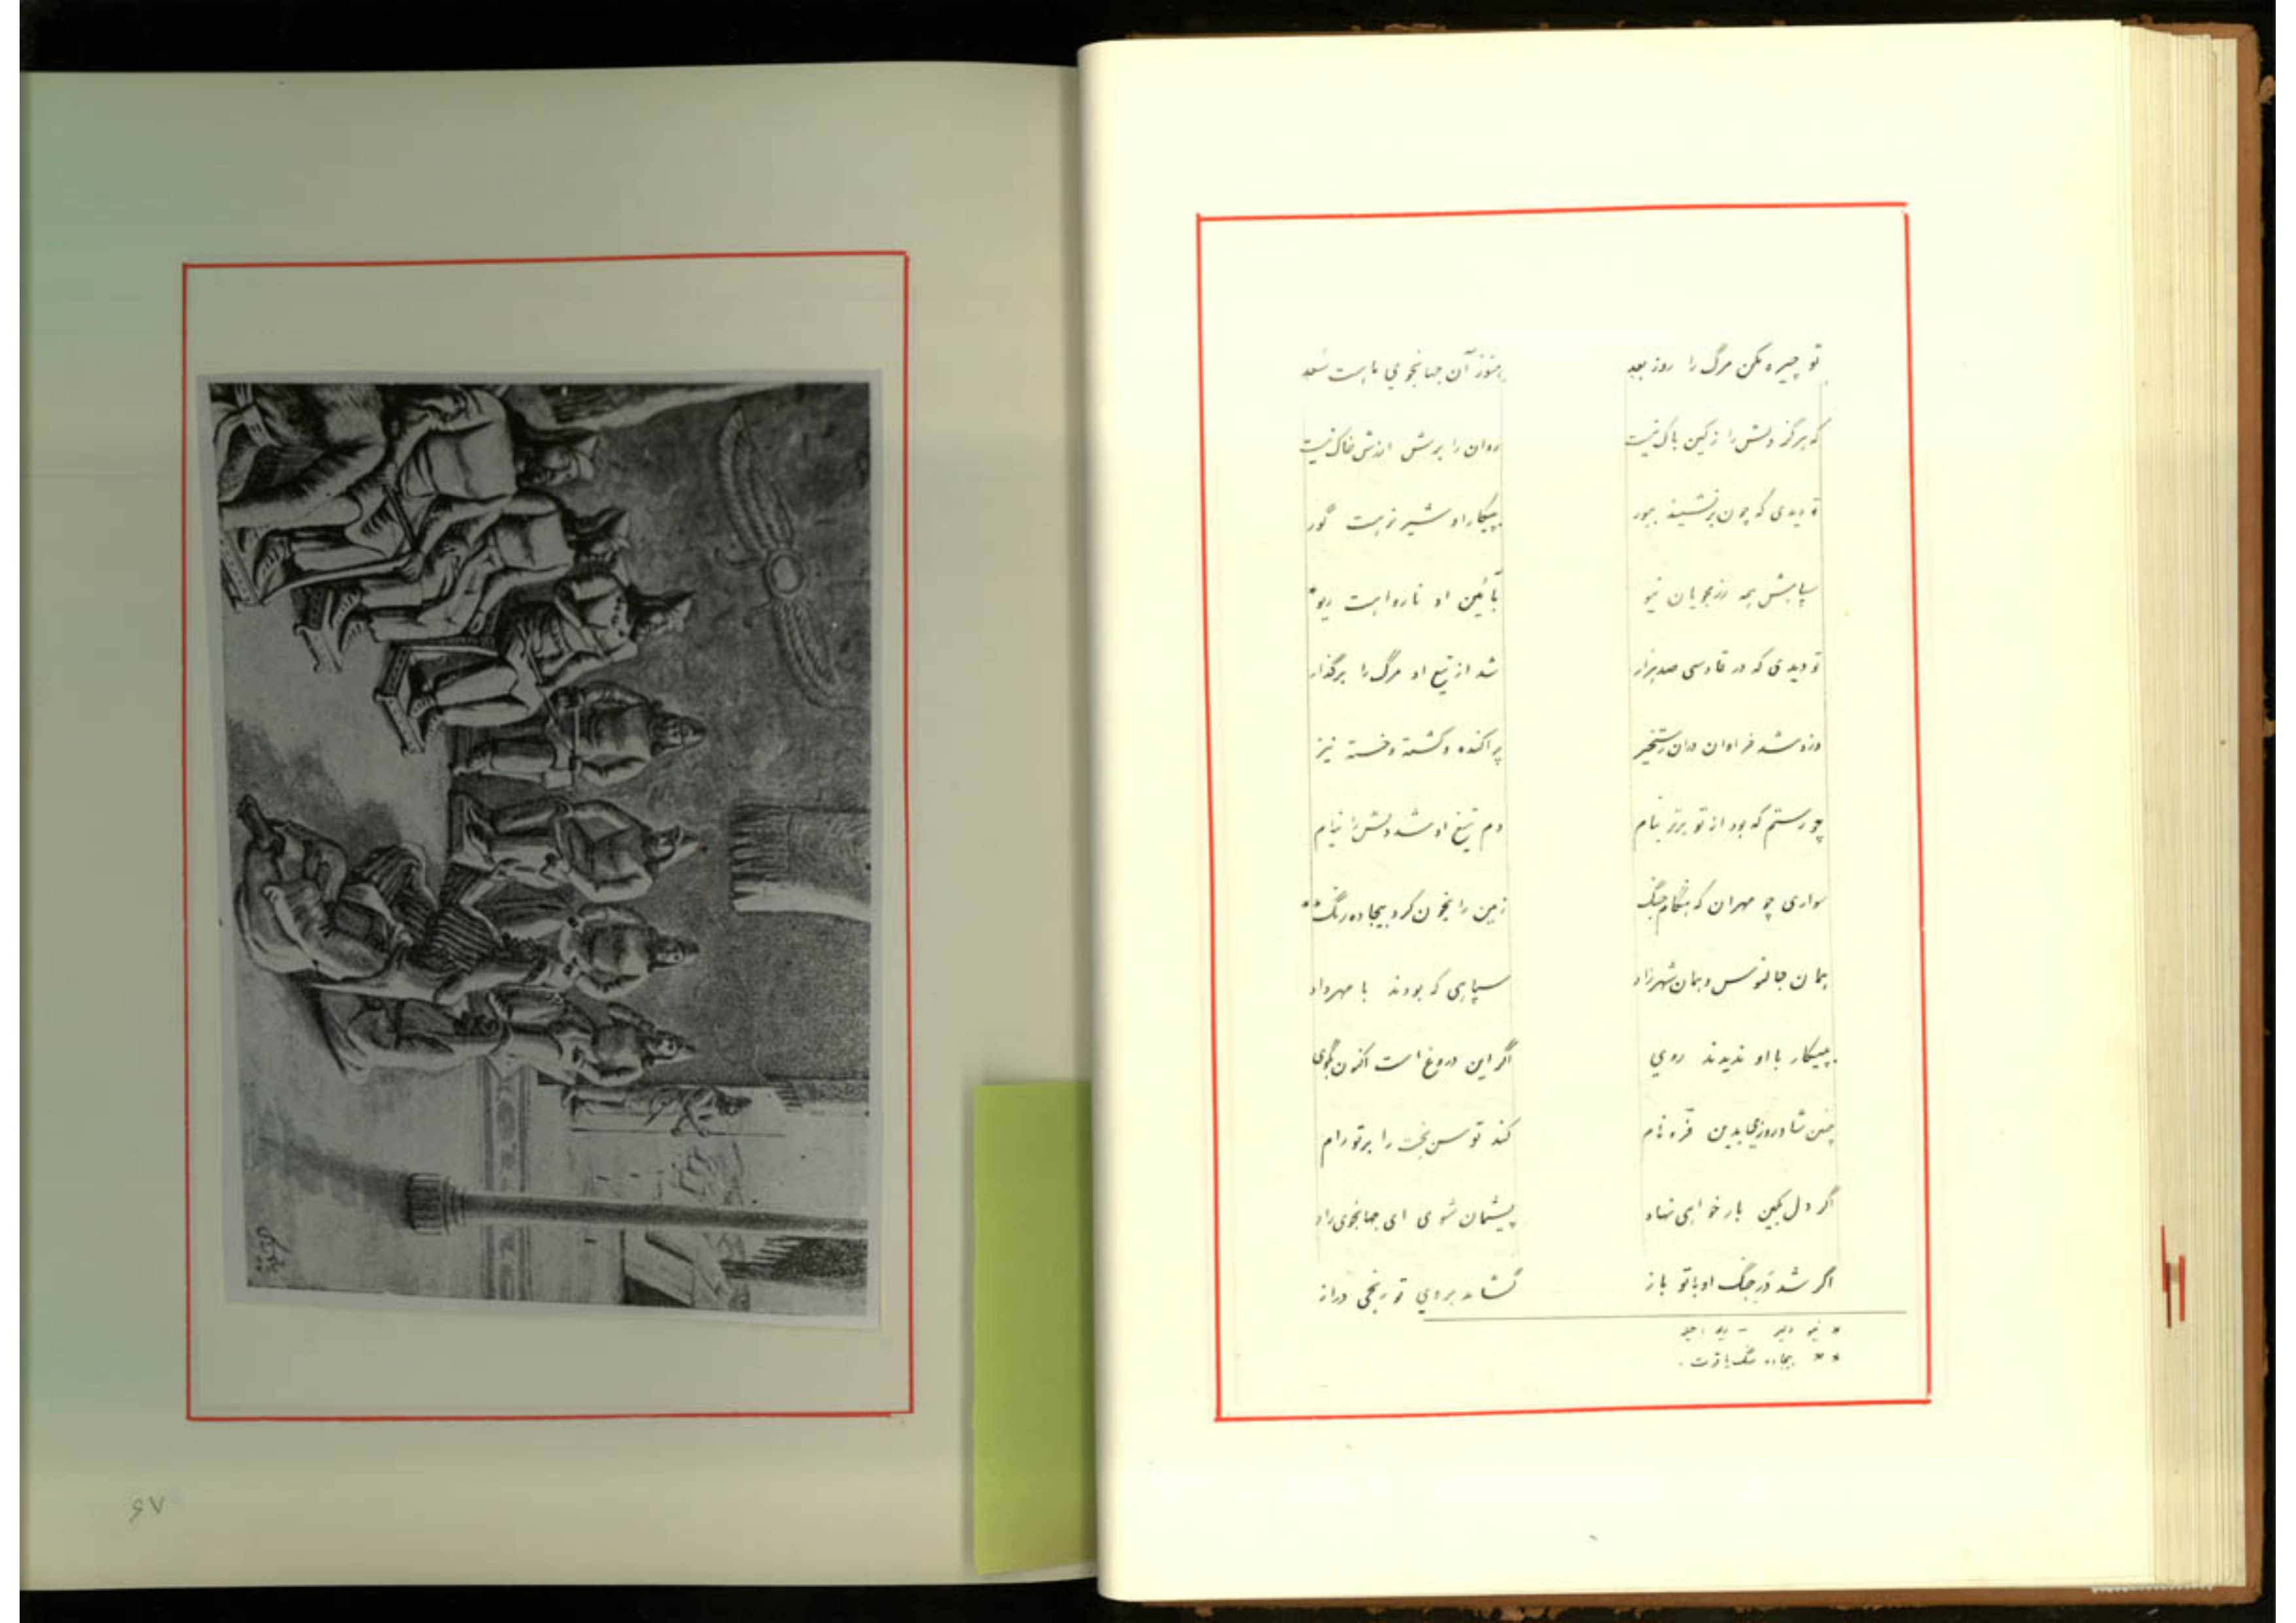 تو چیره مکن مرگ را روز بعد    هنوز آن جهانجوی ما هست سعد
که هرگز دلش را ز کین باک نیست    روان را برش ارزش خاک نیست
تو دیدی که چون برنشیند ببور    بپیکار او شیر نر هست گور
سپاهش همه رزمجویان نیو    بآئین او نارواست ریو*
تو دیدی که در قادسی صد هزار    شد از تیغ او مرگ را برگذار
وزو شد فراوان در آن رستخیز    پراکنده و کشته و خسته نیز
چو رستم که بود از تو برتر بنام    دم تیغ او شد دلش را نیام
سواری چو مهران که هنگام جنگ    زمین را بخون کرد بیجاده رنگ**
همان جالنوس و همان شهرزاد    سپاهی که بودند با مهرداد
بپیکار با او ندیدند روی    اگر این دروغ است اکنون بگوی
چنین شاد روزی بدین فره نام    کند توسن بخت را بر تو رام
اگر دل بکین بار خواهی نهاد    پشیمان شوی ای جهانجوی راد
اگر شد در جنگ او با تو باز    گشاید بروی تو رنجی دراز
* نیو دلیر - ریو حیله
** بیجاده سنگ یاقوت .
۶۷